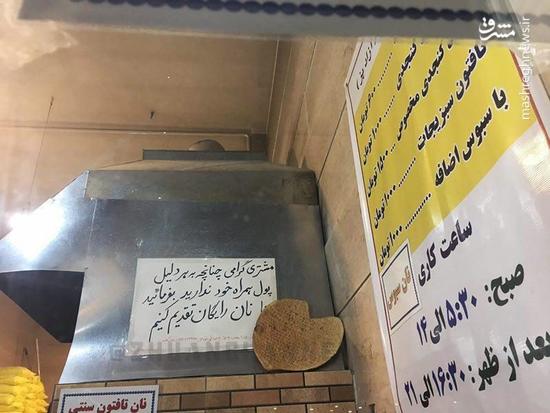 مشتری گرامی چنانچه به هر دلیل
پول همراه خود ندارید بفرمائید
تا نان رایگان تقدیم کنیم
نان تافتون سنتی
کنجدی
کنجدی مخصوص ........ تومان
تافتون سبزیجات ........ تومان
با سبوس اضافه ............ ۱۰۰۰ تومان
ساعت کاری
صبح: ۵:۳۰ الی ۱۴
بعد از ظهر: ۱۶:۳۰ الی ۲۱
نان سبوس
مشرق
mashreghnews.ir